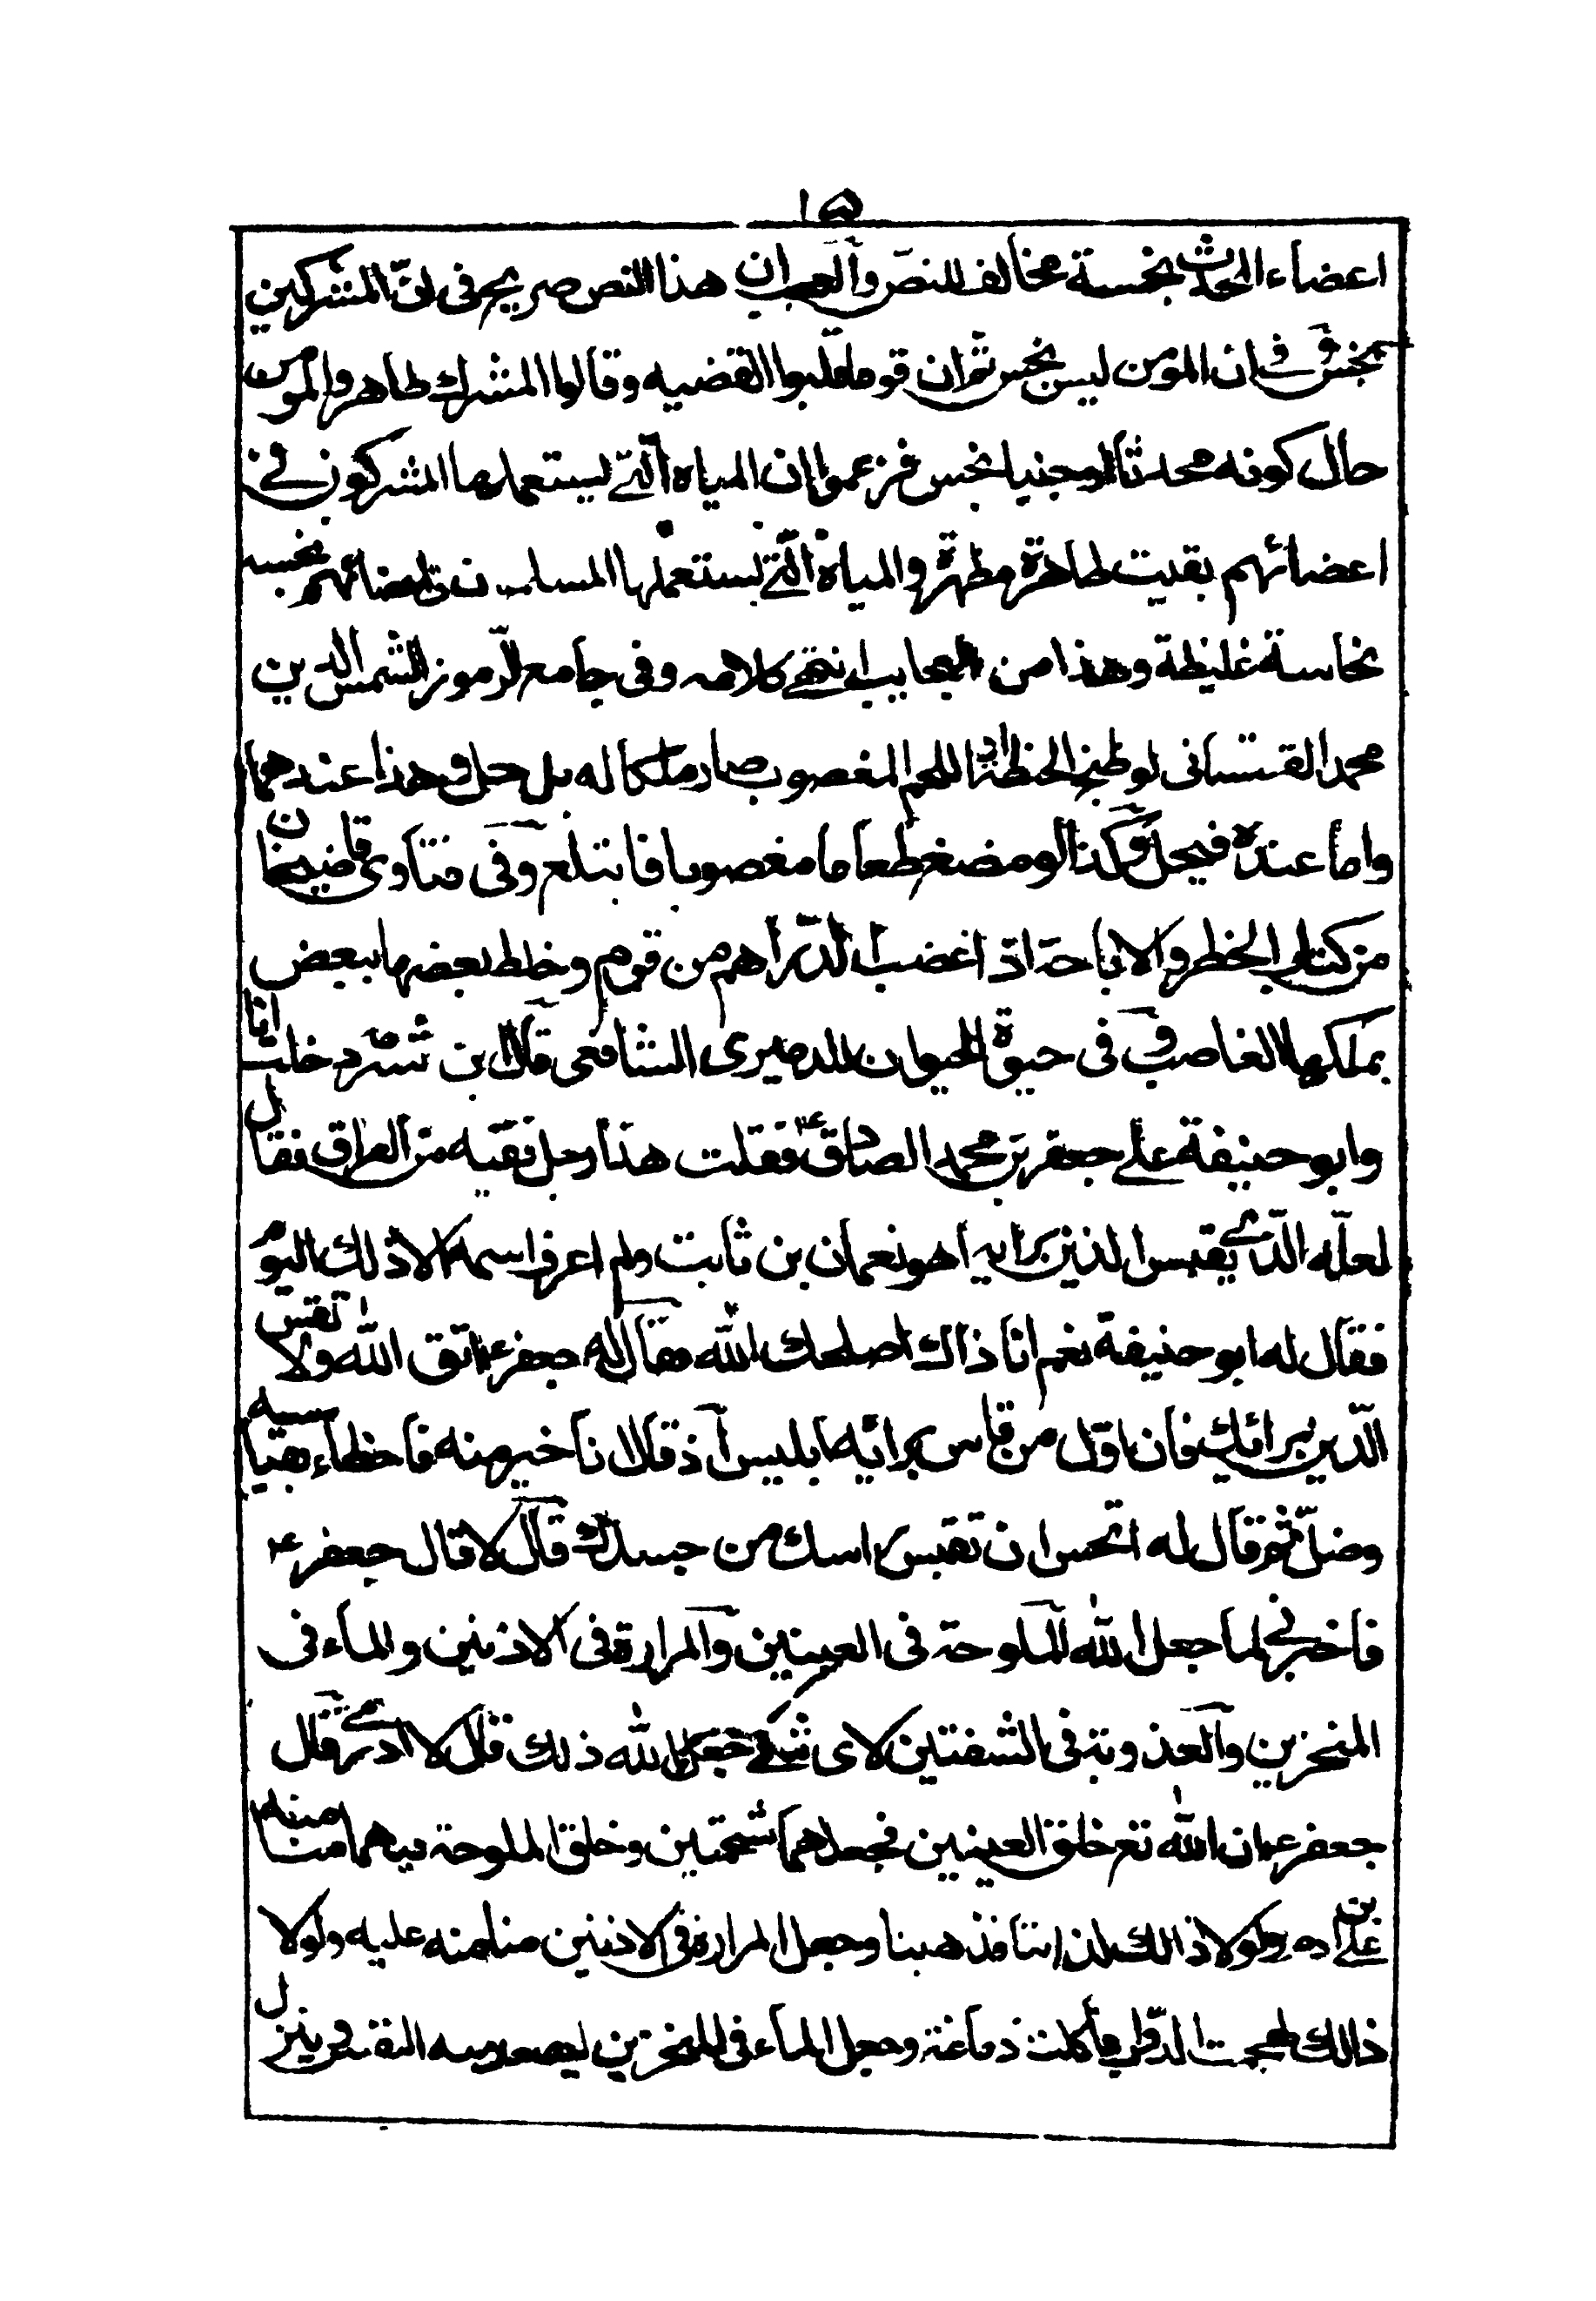 ١٥
اعضاء المحدث نجسة مخالف للنص والعجب ان هذا النص صريح فى ان المشركين
نجس وفى ان المومن ليس بنجس ثم ان قوما قلبوا القضيه وقالوا المشرك طاهر والمومن
حال كونه محدثا او جنبا نجس فزعموا ان المياه التى يستعملها المشركون فى
اعضائهم بقيت طاهرة مطهرة والمياه التى يستعملها المسلمون فى اعضائهم نجسه
نجاسة غليظة وهذا من العجايب انتهى كلامه وفى جامع الرموز لشمس الدين
محمد القهستانى لو طبخ الحنطة او اللحم المغصوب صار ملكا له بل حل وهذا عندهما
واما عنده فيحل وكذا لو مضغ طعاما مغصوبا فابتلع وفى فتاوى قاضيخان
من كتاب الحظر والاباحة اذا غضب الدراهم من قوم وخلط بعضها ببعض
يملكها الغاصب وفى حيوة الحيوان للدميرى الشافعى قال ابن شبرمة دخلت انا
وابو حنيفة على جعفر بن محمد الصادق ع فقلت هذا رجل فقيه من العراق فقال
لعله الذى يقيس الدين برايه اهو نعمان بن ثابت ولم اعرف اسمه الا ذلك اليوم
فقال له ابو حنيفة نعم انا ذاك اصلحك الله فقال له جعفر ع اتق الله ولا تقس
الدين برائك فان اول من قاس برائه ابليس اذ قال انا خير منه فاخطاء بقياسه
وضل ثم قال له اتحسن ان تقيس راسك من جسدك قال لا قال جعفر ع
فاخبرنى لما جعل الله الملوحة فى العينين والمرارة فى الاذنين والماء فى
المنخرين والعذوبة فى الشفتين لاى شئ جعل الله ذلك قال لا ادرى قال
جعفر ع ان الله تع خلق العينين فجعلهما شحمتين وخلق الملوحة فيهما منا منه
على بن ادم ولولا ذالك لذابتا فذهبتا وجعل المرارة فى الاذنين منا منه عليه ولولا
ذالك لهجمت الدواب فأكلت دماغه وجعل الماء فى المنخرين ليصعد منه النفس وينزل